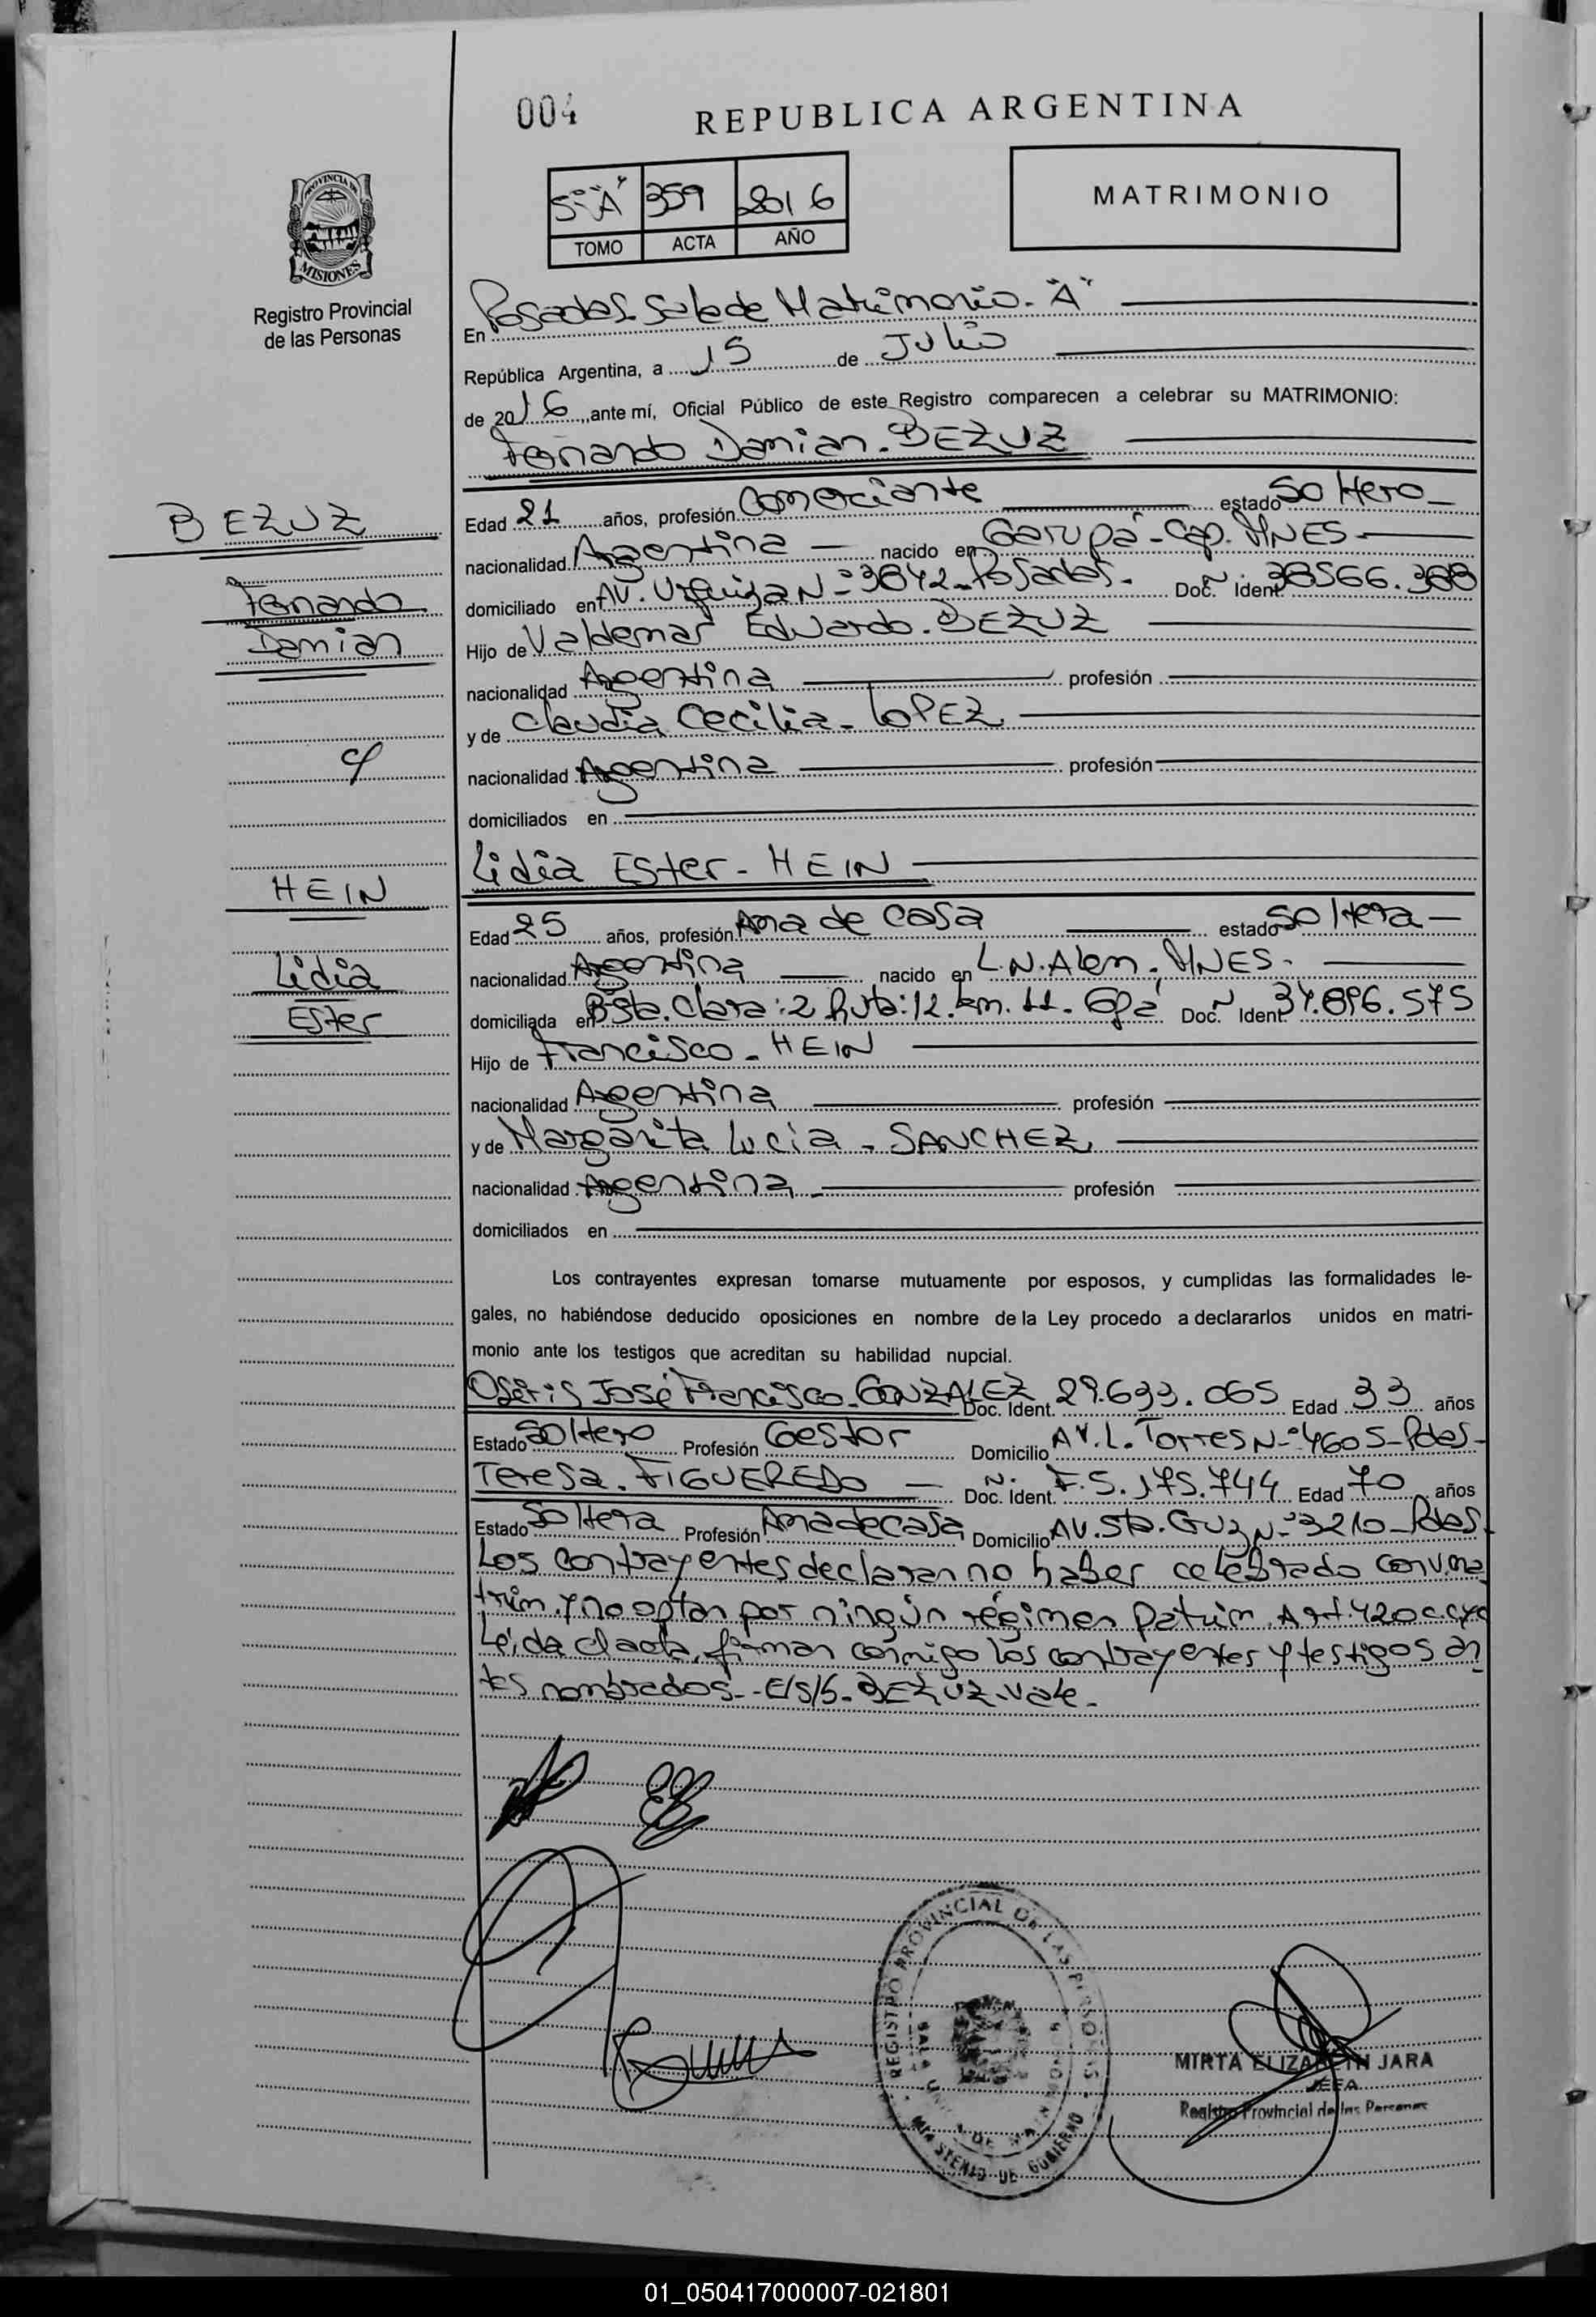 004
REPUBLICA ARGENTINA
5-"A" 359 2016
TOMO ACTA AÑO
MATRIMONIO
PROVINCIA DE
MISIONES
Registro Provincial
de las Personas
En Posadas-Sala de Matrimonio-"A"
República Argentina, a 15 de Julio
de 2016, ante mí, Oficial Público de este Registro comparecen a celebrar su MATRIMONIO:
Fernando Damian-BEZUZ
BEZUZ
Fernando
Damian
Edad 21 años, profesión Comerciante estado Soltero
nacionalidad Argentina nacido en Garupá-Cap. MNES-
domiciliado en AV. Urquiza N-º3842-Posadas- Doc. Ident. 38566.388
Hijo de Valdemar Eduardo-BEZUZ
nacionalidad Argentina profesión
y de Claudia Cecilia-LOPEZ
c/
nacionalidad Argentina profesión
domiciliados en
Lidia Ester-HEIN
HEIN
Lidia
Ester
Edad 25 años, profesión Ama de Casa estado Soltera
nacionalidad Argentina nacido en L.N.Alem-MNES-
domiciliada en Bº Sta. Clara:2 Ruta:12.km.11- Gpá Doc. Ident. 34.896.575
Hijo de Francisco-HEIN
nacionalidad Argentina profesión
y de Margarita Lucia-SANCHEZ
nacionalidad Argentina profesión
domiciliados en
Los contrayentes expresan tomarse mutuamente por esposos, y cumplidas las formalidades le-
gales, no habiéndose deducido oposiciones en nombre de la Ley procedo a declararlos unidos en matri-
monio ante los testigos que acreditan su habilidad nupcial.
Osiris José Francisco-GONZALEZ Doc. Ident. 29.633.065 Edad 33 años
Estado Soltero Profesión Gestor Domicilio AV.L.Torres N-º4605-Pdas-
Teresa-FIGUEREDO Doc. Ident. F.5.175.744 Edad 70 años
Estado Soltera Profesión Ama de casa Domicilio AV.Sta.Cruz N-º3210-Pdas-
Los contrayentes declaran no haber celebrado conv.ma
trim.y no optan por ningún régimen Patrim. Art.420 c.cyc
Leída el acta, firman conmigo los contrayentes y testigos an
tes nombrados--E/S/S-BEZUZ-Vale-
REGISTRO PROVINCIAL DE LAS PERSONAS
MINISTERIO DE GOBIERNO
MIRTA ELIZABETH JARA
JEFA
Registro Provincial de las Personas
01_050417000007-021801